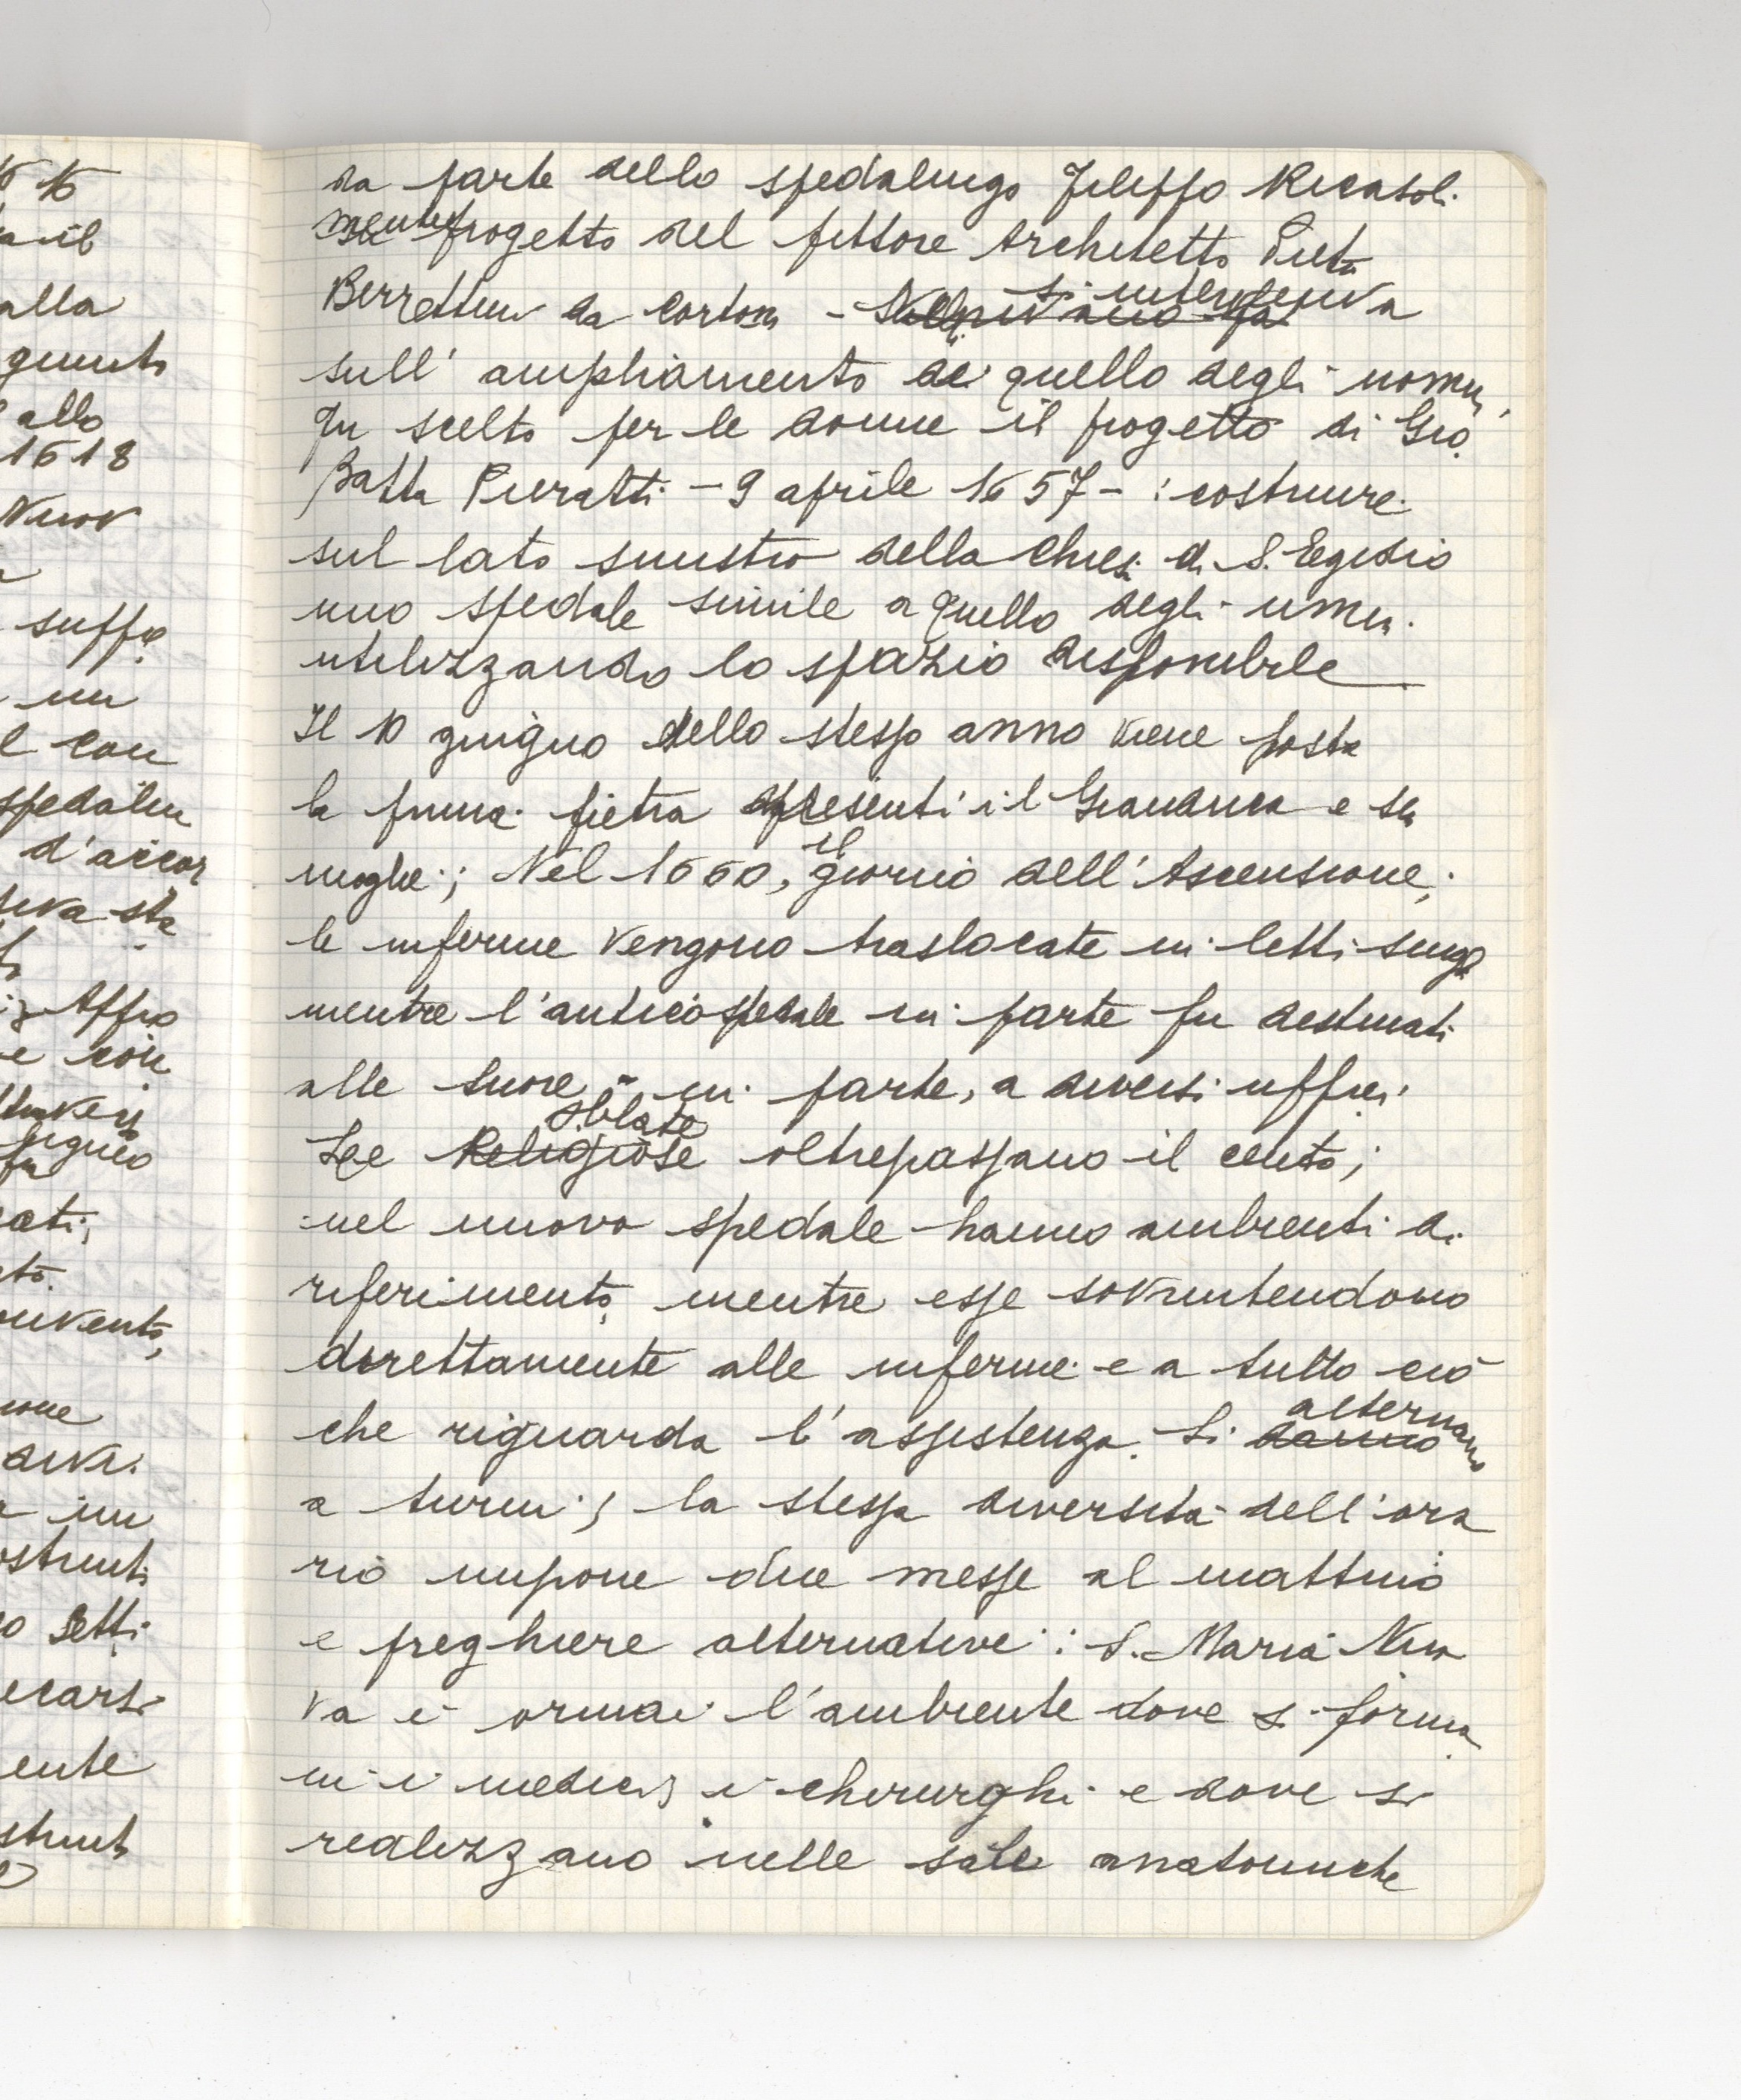 16
a il
alla
quinto
allo
1618
Nuov
suffi
un
l con
spedalin
d'accor
sta
Affio
e con
cati,
to.
ivento,
ione
a un
ostruit
o setti
ecarsi
ente
da parte dello spedalingo Filippo Ricasoli.
mentre progetto del pittore Architetto Pietro
si interveniva
Berrettini da Cortona -
sull' ampliamento di quello degli uomini,
fu scelto per le donne il progetto di Gio.
Batta Pieratti - 9 aprile 1657 - : costruire
sul lato sinistro della Chiesa di S. Egidio
uno spedale simile a quello degli uomini.
utilizzando lo spazio disponibile
Il 10 giugno dello stesso anno viene posta
la prima pietra presenti il Granduca e la
il
moglie; Nel 1660, giorno dell'Ascensione,
le inferme vengono traslocate in letti singoli
mentre l'antico spedale in parte fu destinato
alle suore - in parte, a diversi uffici
oblate
Le Religiose oltrepassano il cento;
nel nuovo spedale hanno ambienti di
riferimento, mentre esse sovrintendono
direttamente alle inferme e a tutto ciò
alternano
che riguarda l'assistenza. Si danno
a turni; la stessa diversità dell'ora
rio impone due messe al mattino
e preghiere alternative: S. Maria Nuo
va è ormai l'ambiente dove si forma
ni i medici, i chirurghi e dove si
realizzano nelle sale anatomiche